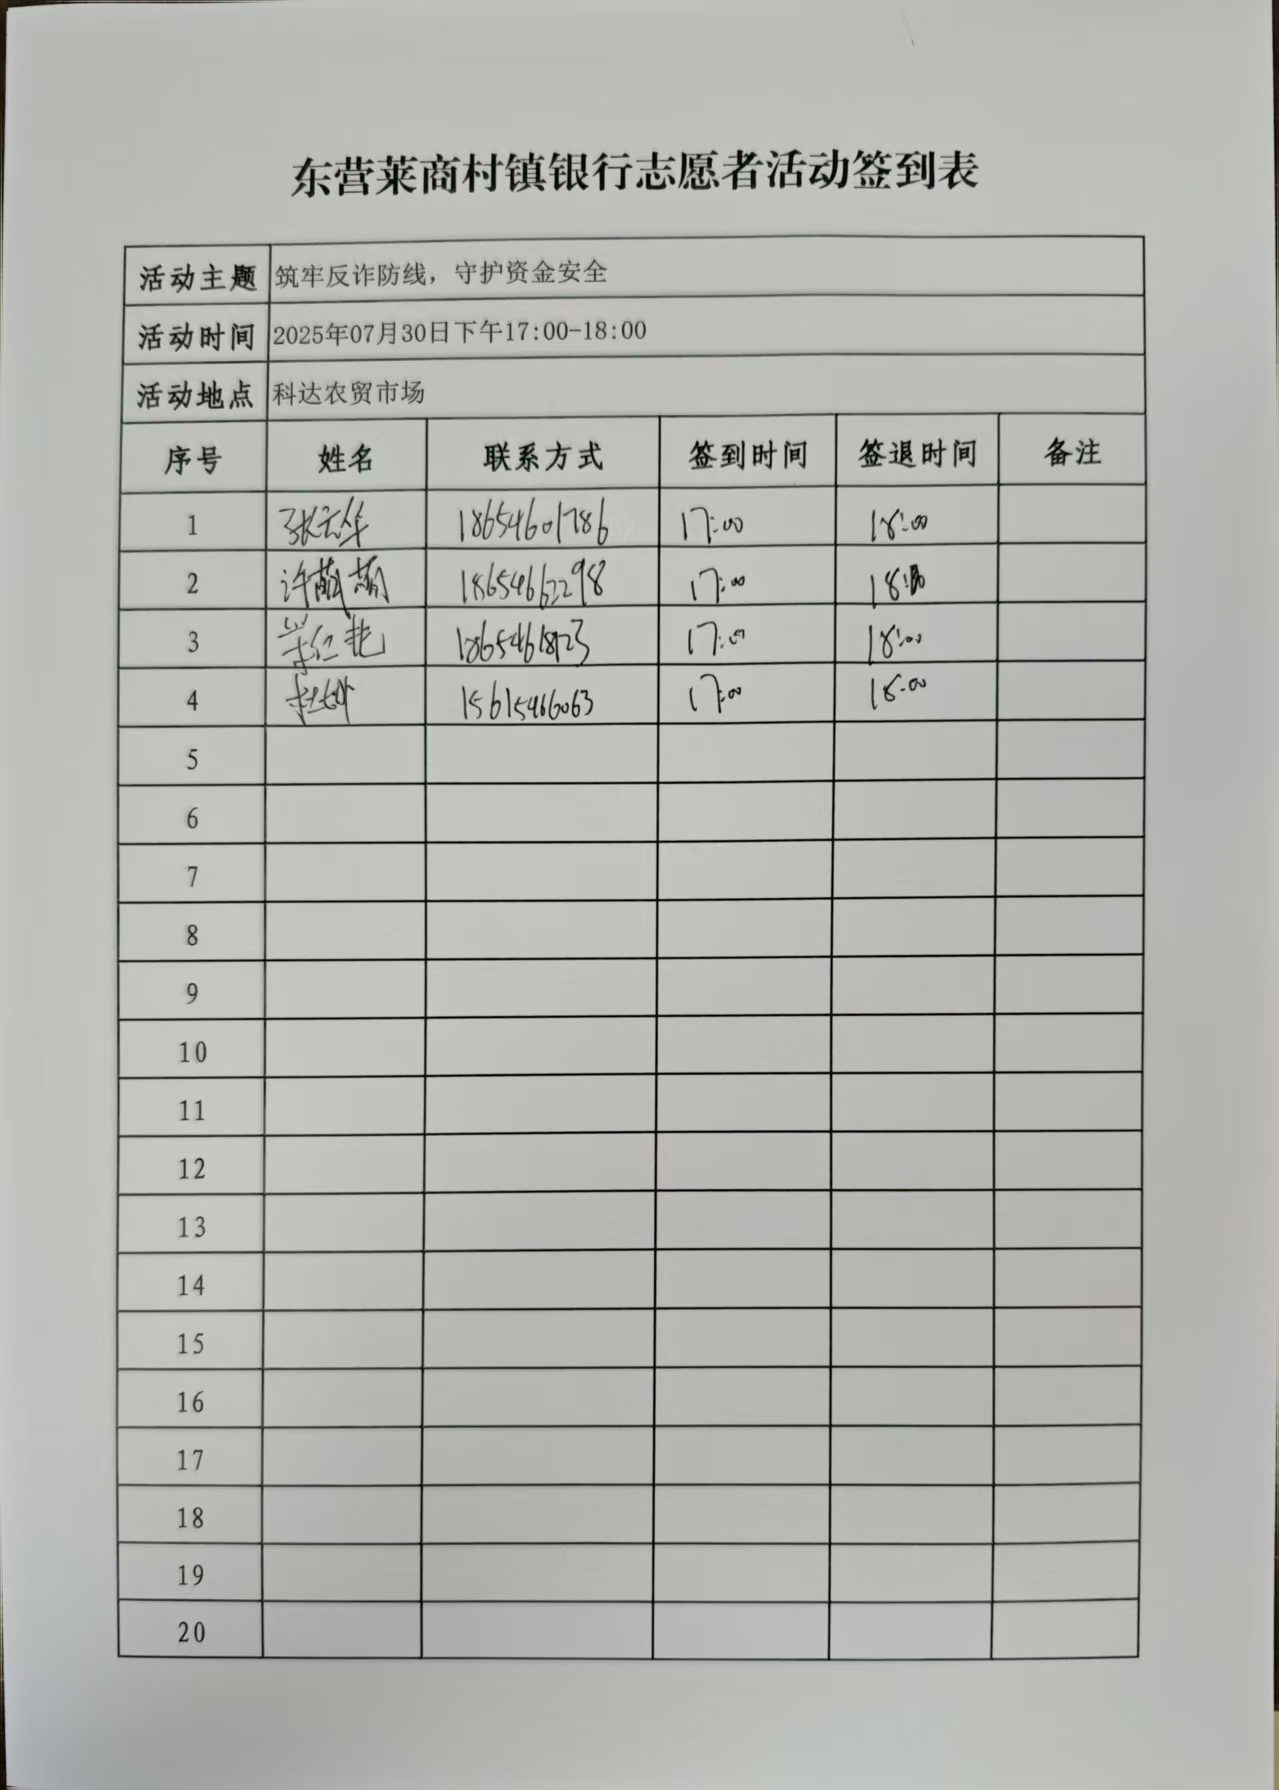 东营莱商村镇银行志愿者活动签到表
活动主题 筑牢反诈防线，守护资金安全
活动时间 2025年07月30日下午17:00-18:00
活动地点 科达农贸市场
序号 姓名 联系方式 签到时间 签退时间 备注
1 18654601786 17:00 18:00
2 许萌萌 18654662298 17:00
3 17:00 18:00
4 15615466063 17:00 18:00
5
6
7
8
9
10
11
12
13
14
15
16
17
18
19
20